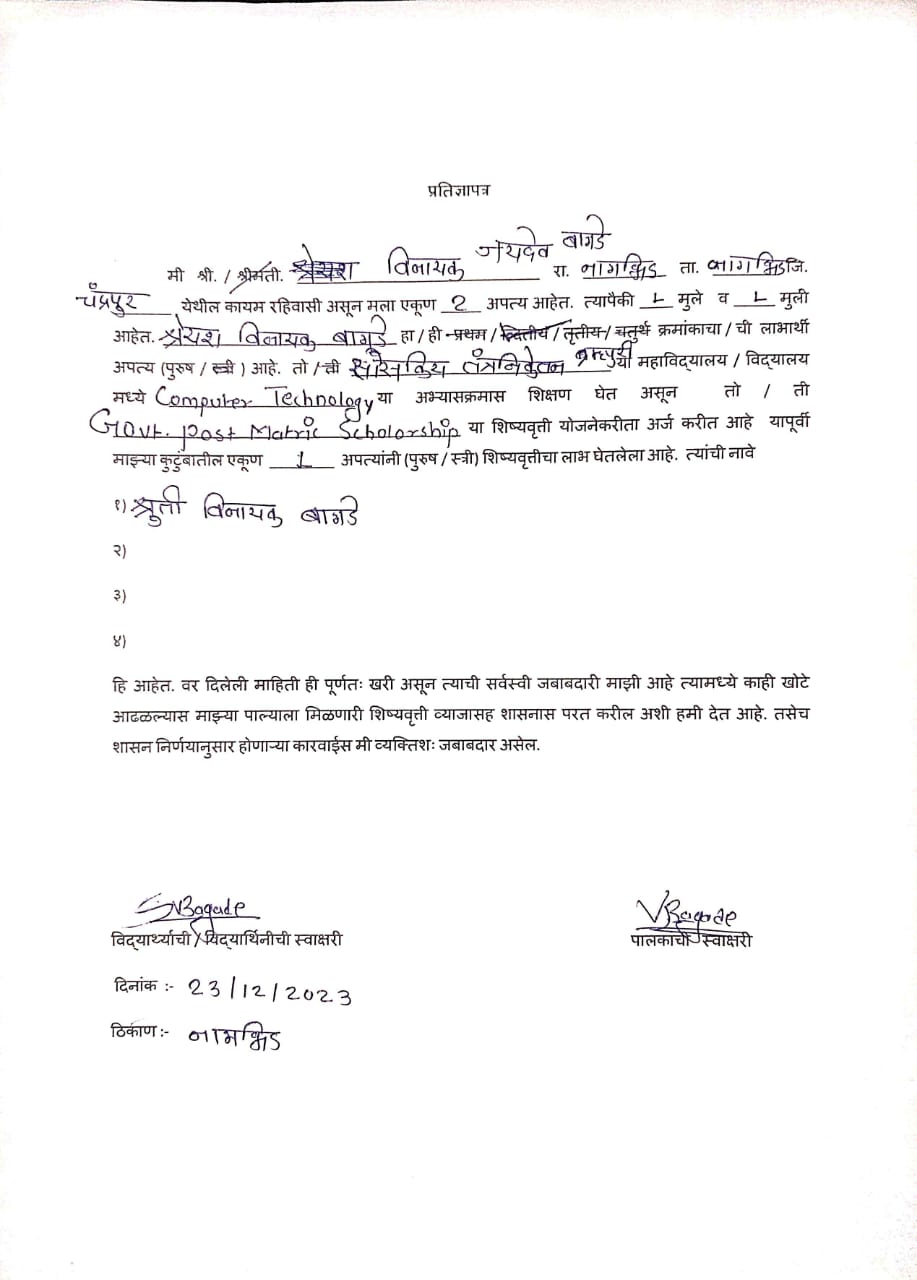 प्रतिज्ञापत्र
जयदेव बागडे
मी श्री. / श्रीमती. श्रेयश विनायक रा. नागभिड ता. नागभिड जि.
चंद्रपुर येथील कायम रहिवासी असून मला एकूण 2 अपत्य आहेत. त्यापैकी 1 मुले व 1 मुली
आहेत. श्रेयश विनायक बागडे हा / ही प्रथम / द्वितीय / तृतीय / चतुर्थ क्रमांकाचा / ची लाभार्थी
अपत्य (पुरुष / स्त्री ) आहे. तो / ची तंत्रनिकेतन ब्रम्हपुरी या महाविद्यालय / विद्यालय
मध्ये Computer Technology या अभ्यासक्रमास शिक्षण घेत असून तो / ती
Govt. post Matric Scholorship या शिष्यवृत्ती योजनेकरीता अर्ज करीत आहे यापूर्वी
माझ्या कुटुंबातील एकूण 1 अपत्यांनी (पुरुष / स्त्री) शिष्यवृत्तीचा लाभ घेतलेला आहे. त्यांची नावे
१) श्रुती विनायक बागडे
२)
३)
४)
हि आहेत. वर दिलेली माहिती ही पूर्णतः खरी असून त्याची सर्वस्वी जबाबदारी माझी आहे त्यामध्ये काही खोटे
आढळल्यास माझ्या पाल्याला मिळणारी शिष्यवृत्ती व्याजासह शासनास परत करील अशी हमी देत आहे. तसेच
शासन निर्णयानुसार होणाऱ्या कारवाईस मी व्यक्तिशः जबाबदार असेल.
SVBagade VBagade
विद्यार्थ्याची / विद्यार्थिनीची स्वाक्षरी पालकाची स्वाक्षरी
दिनांक :- 23/12/2023
ठिकाण :- नागभिड